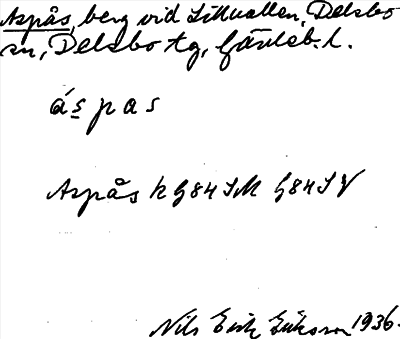 Aspås, berg vid Lillvallen, Delsbo
sn, Delsbo tg, Gävleb. l.
áspas
Aspås k G84SM G84SV
Nils Erik Eriksson 1936.